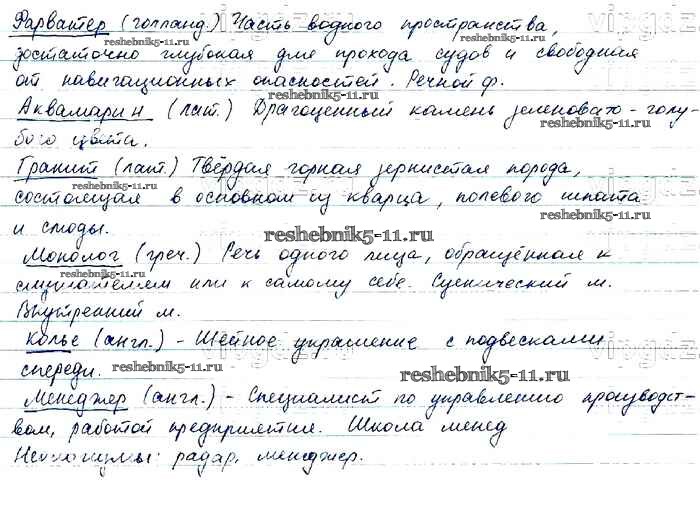 Фарватер (голланд.) Часть водного пространства,
достаточно глубокая для прохода судов и свободная
reshebnik5-11.ru
reshebnik5-11.ru
от навигационных опасностей. Речной ф.
reshebnik5-11.ru
Аквамарин (лат.) Драгоценный камень зеленовато-голу-
reshebnik5-11.ru
бого цвета.
Гранит (лат.) Твёрдая горная зернистая порода,
reshebnik5-11.ru
состоящая в основном из кварца, полевого шпата
и слюды.
reshebnik5-11.ru
Монолог (греч.) Речь одного лица, обращённая к
reshebnik5-11.ru
слушателям или к самому себе. Сценический м.
Внутренний м.
Колье (англ.) - Шейное украшение с подвесками
спереди.
reshebnik5-11.ru
reshebnik5-11.ru
Менеджер (англ.) - Специалист по управлению производст-
вом, работой предприятия. Школа менед
Неологизмы: радар, менеджер.
reshebnik5-11.ru